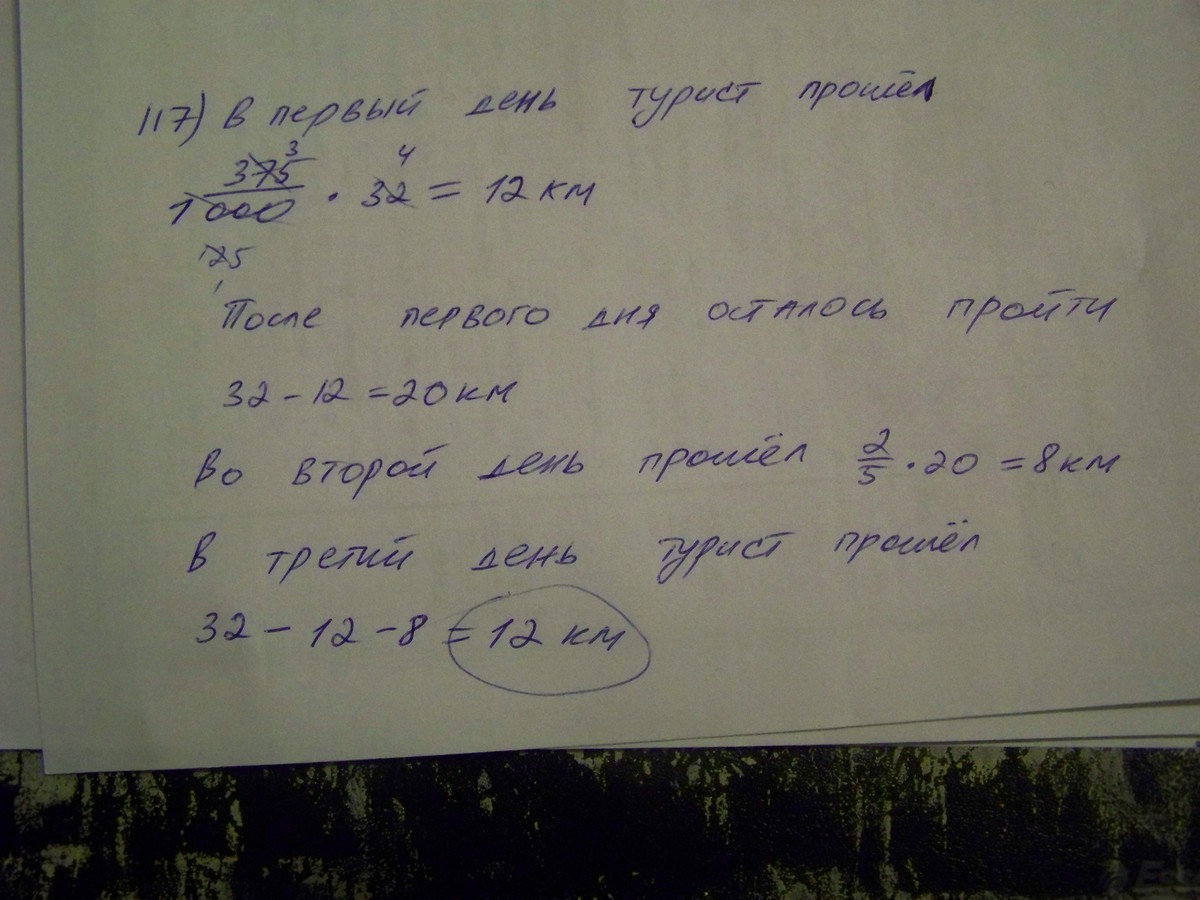 117) В первый день турист прошёл
3
375
4
1000 · 32 = 12 км
125
1
После первого дня осталось пройти
32 - 12 = 20 км
Во второй день прошёл 2/5 · 20 = 8 км
В третий день турист прошёл
32 - 12 - 8 = 12 км